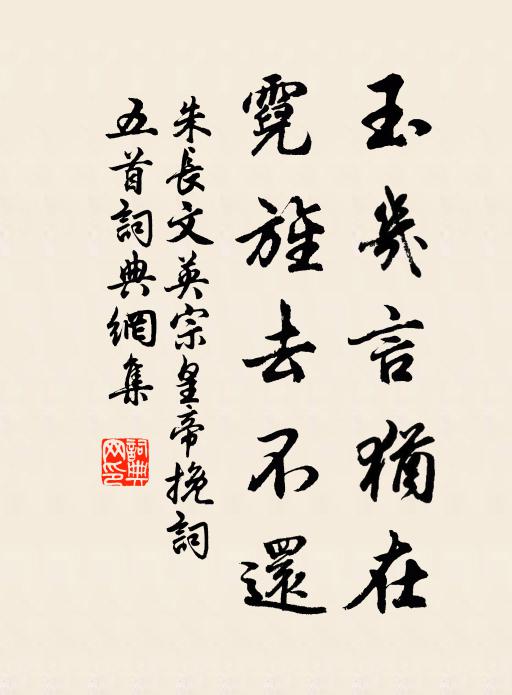 玉幾言猶在
霓旌去不還
朱長文英宗皇帝挽詞
五首詞典網集
詞典
网印